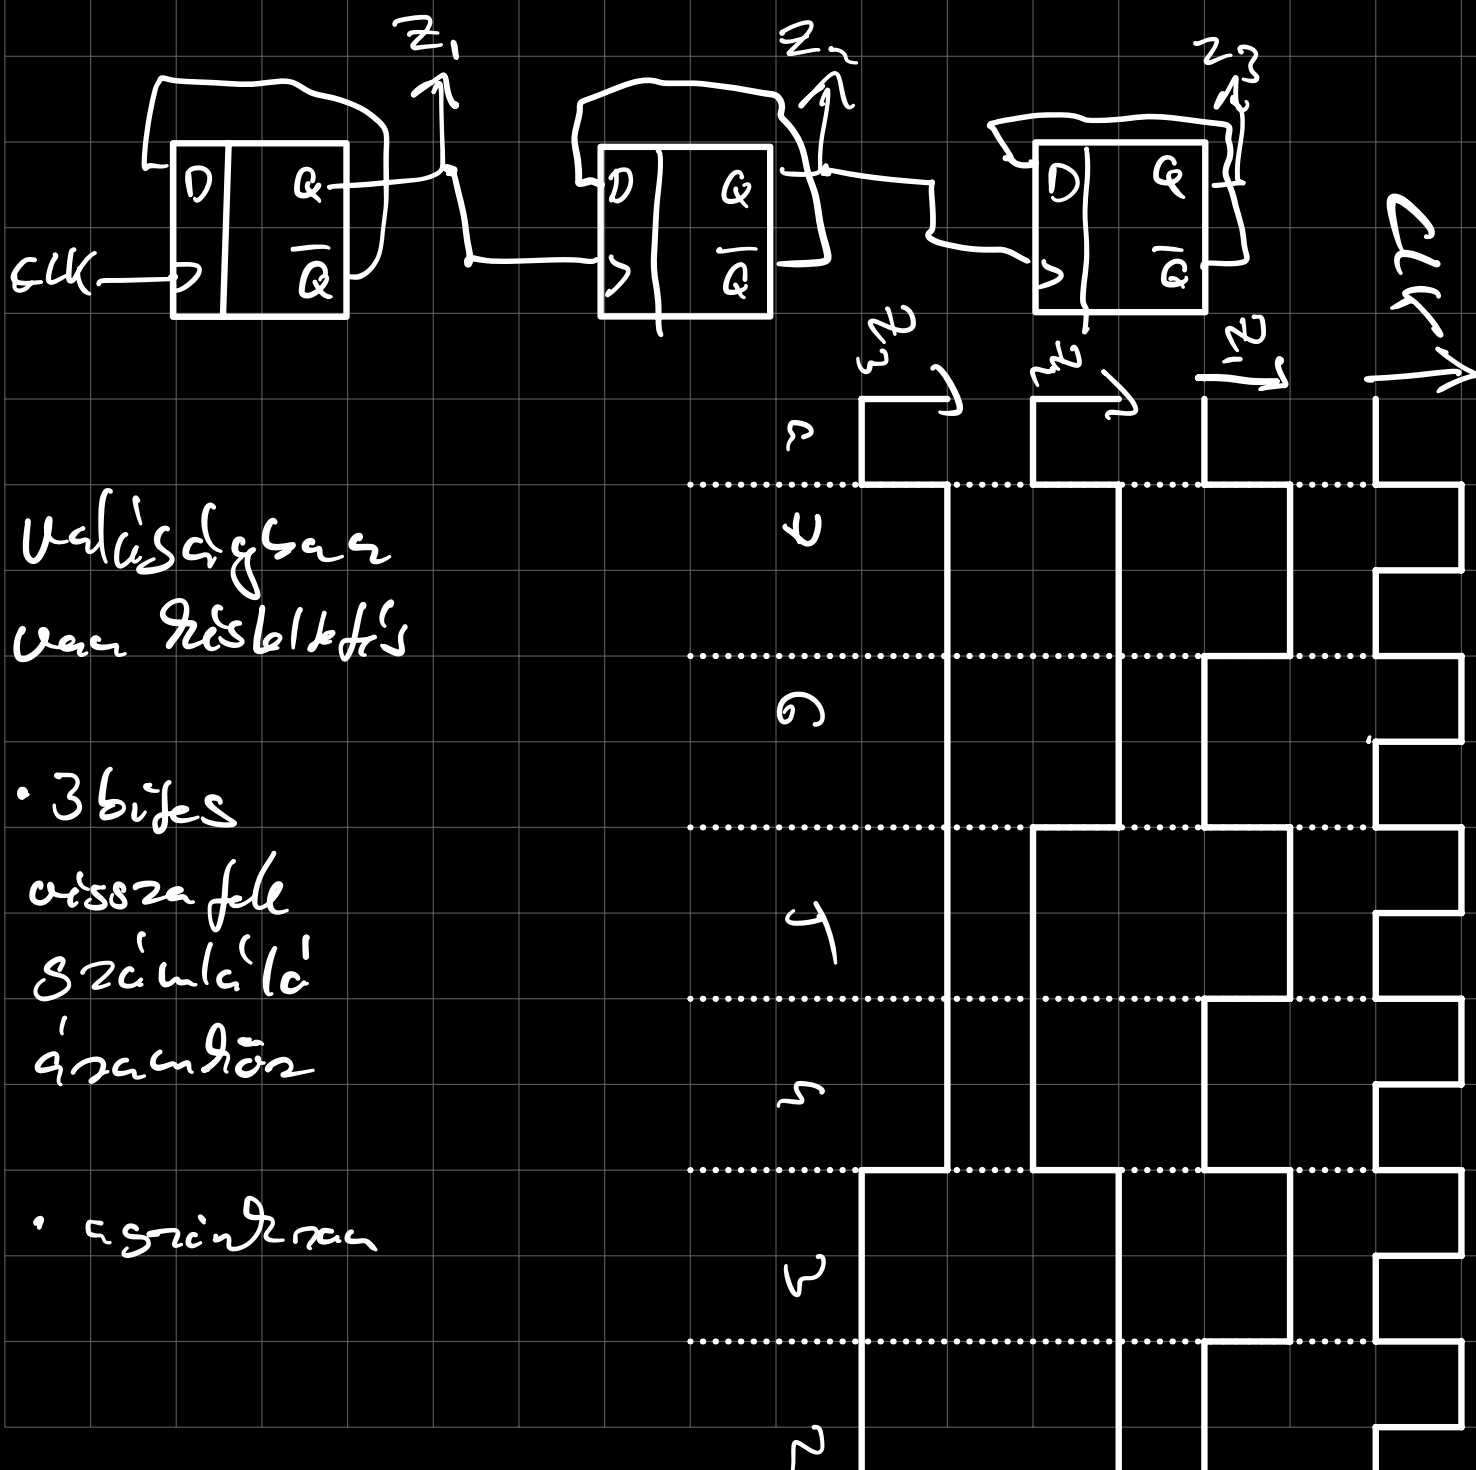 Z1
Z2
Z3
D Q
Q
CLK
D Q
Q
D Q
Q
CLK
Z3
Z2
Z1
7
6
5
4
3
2
valóságban
van késleltetés
• 3 bites
visszafele
számláló
áramkör
• aszinkron